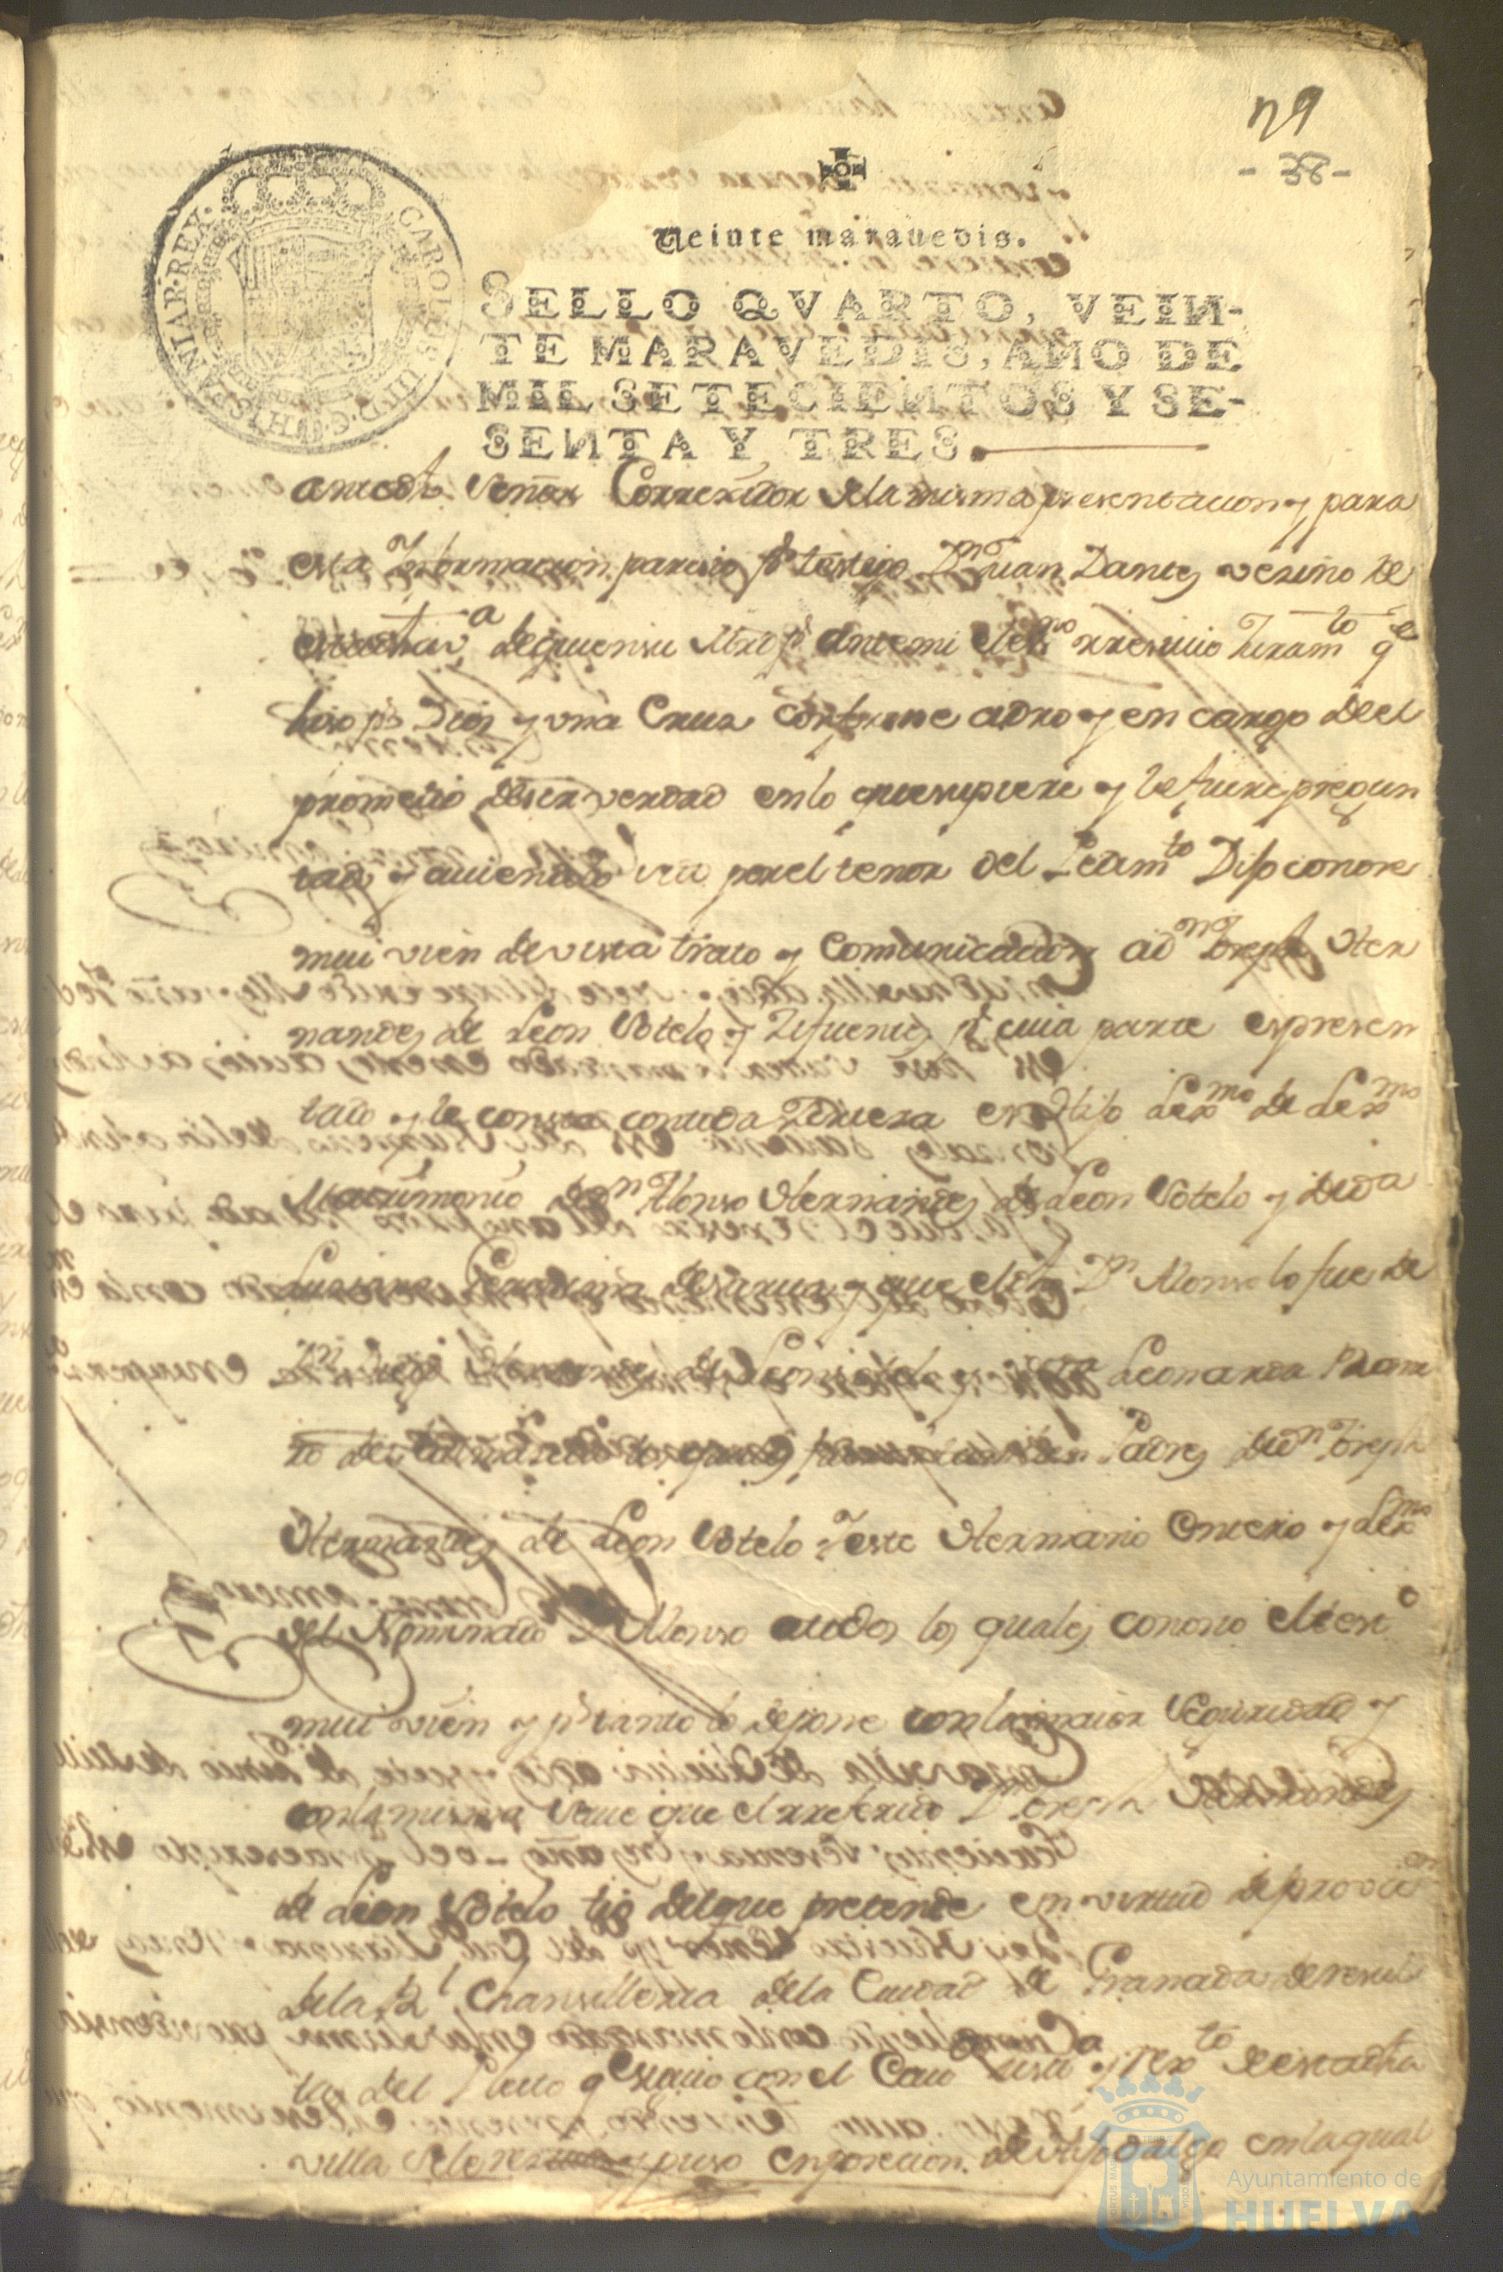 29
- 38 -
Veinte maravedis.
SELLO QVARTO, VEIN-
TE MARAVEDIS, AÑO DE
MIL SETECIENTOS Y SE-
SENTA Y TRES.
CAROLUS III D.G. HISPANIAR. REX.
Señor Correxidor dela misma presentacion y para
esta Informacion parecio pr testigo Dn Juan Dantes vezino de
esta va de quien su Mrd pr ante mi el esno rresiuio Juramto qe
hizo pr Dios y una Cruz conforme a dro y en cargo de el
prometio desir verdad en lo que supiere y le fuere pregun
tado y auiendolo sido por el tenor del Pedimto Dijo conose
mui vien de vista trato y Comunicacion a dn Joseph Her
nandes de Leon Sotelo y Zifuentes pr cuia parte es presen
tado y le consta con toda Zerteza es Hijo Lexmo de Lexmo
Matrimonio de dn Alonso Hernandes de Leon Sotelo y de da
y que el dho Dn Alonso lo fue de
Dn Hernandes de Leon Sotelo y da Leonarda
Padres de dn Joseph
Hernandes de Leon Sotelo este Hermano entero y Lexmo
del Nominado Dn Alonso a todos los quales conosio el testo
mui vien y pr tanto lo depone con la maior seguridad y
con la misma save que el rreferido Dn Joseph Hernandes
de Leon Sotelo tio del que pretende en virtud de provicion
de la Rl Chansilleria dela Ciudad de Granada de resul
tas del Pleito qe siguio con el Cauo Justa y Rexto de esta dha
villa se le y puso en posecion de Hijo dalgo en la qual
Ayuntamiento de
HUELVA